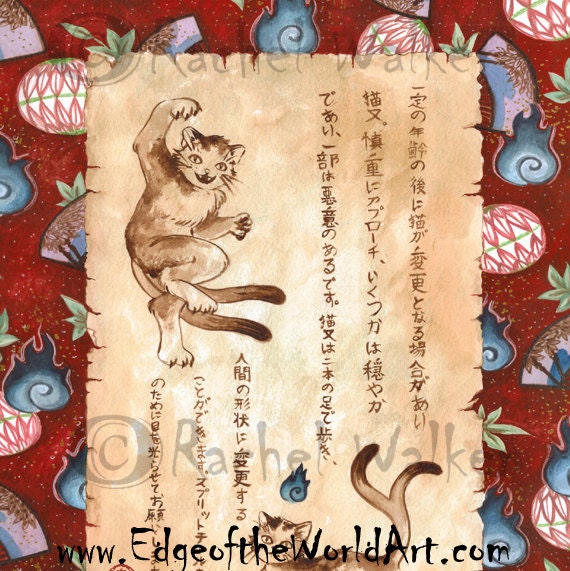 © Rachel Walker
一定の年齢の後に猫が変更となる場合があり
猫又。慎重にアプローチ、いくつかは穏やか
であり、一部は悪意のあるです。猫又は二本の足で歩き、
人間の形状に変更する
ことができます。スプリットテール
のために目を光らせてお願い
© Rachel Walker
www.EdgeoftheWorldArt.com